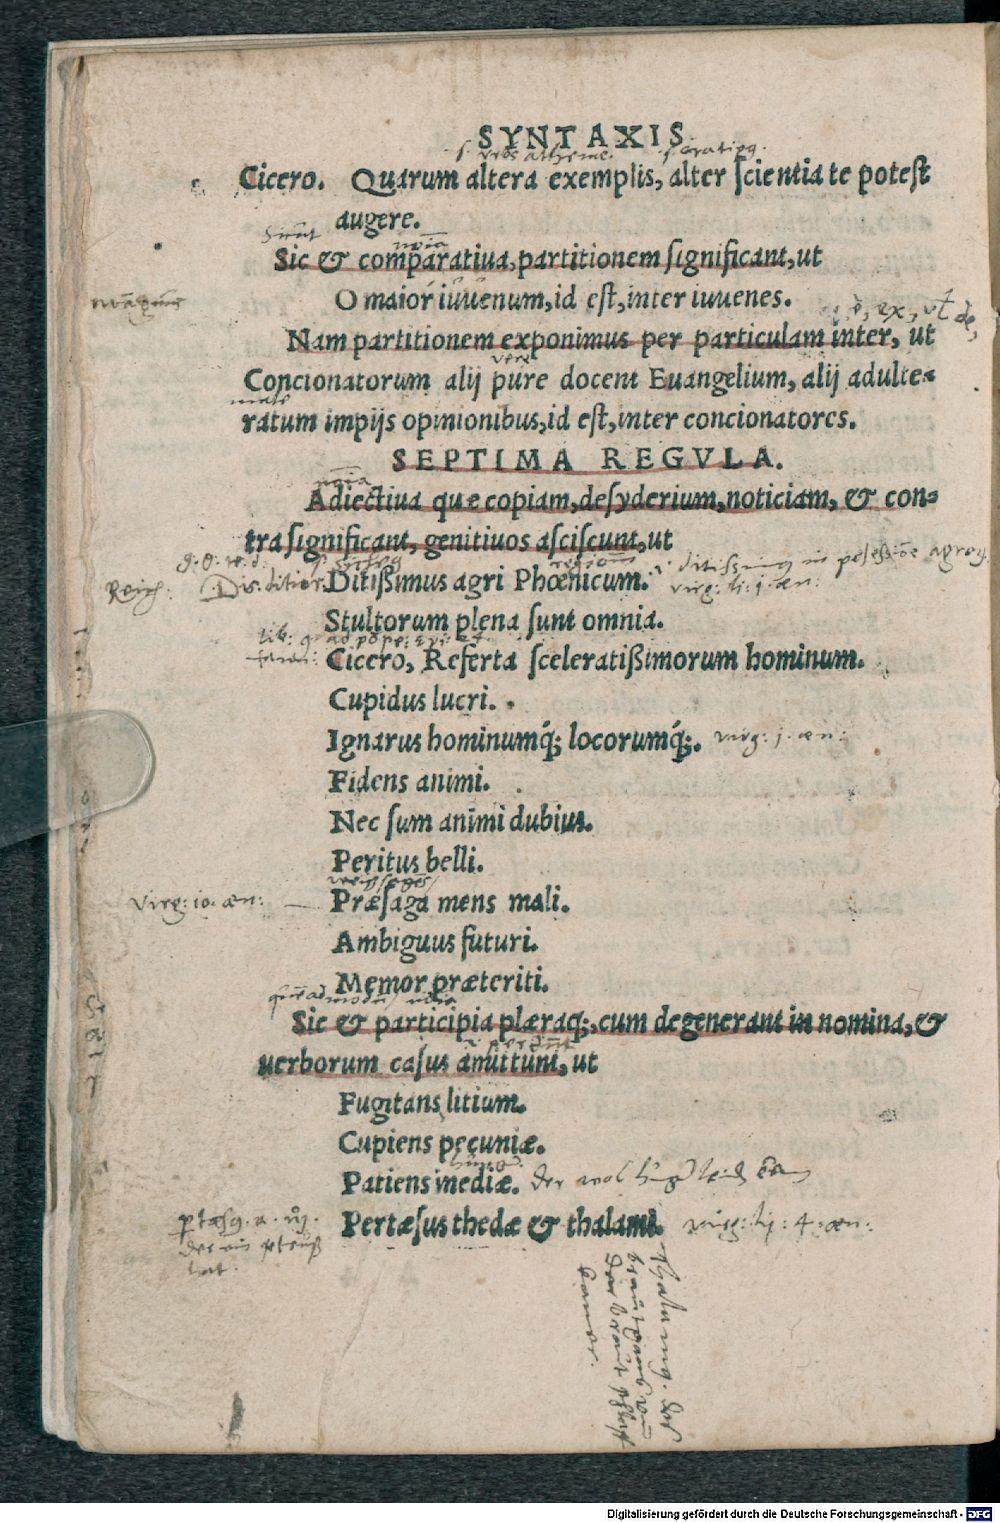 SYNTAXIS
Cicero. Quarum altera exemplis, alter scientia te potest
augere.
Sic & comparatiua, partitionem significant, ut
O maior iuuenum, id est, inter iuuenes.
Nam partitionem exponimus per particulam inter, ut
vere
Concionatorum alij pure docent Euangelium, alij adulte-
male
ratum impijs opinionibus, id est, inter concionatores.
SEPTIMA REGVLA.
Adiectiua quæ copiam, desyderium, noticiam, & con-
tra significant, genitiuos asciscunt, ut
Reich:
Ditißimus agri Phœnicum.
virg: li: j. æn:
Stultorum plena sunt omnia.
Cicero, Referta sceleratißimorum hominum.
Cupidus lucri.
Ignarus hominumq́; locorumq́;. virg: j. æn:
Fidens animi.
Nec sum animi dubius.
Peritus belli.
virg: 10. æn: Præsaga mens mali.
Ambiguus futuri.
Memor præteriti.
Sic & participia plæraq;, cum degenerant in nomina, &
uerborum casus amittunt, ut
Fugitans litium.
Cupiens pecuniæ.
Patiens inediæ. der wol
Pertæsus thedæ & thalami. virg: lj: 4. æn:
Digitalisierung gefördert durch die Deutsche Forschungsgemeinschaft - DFG